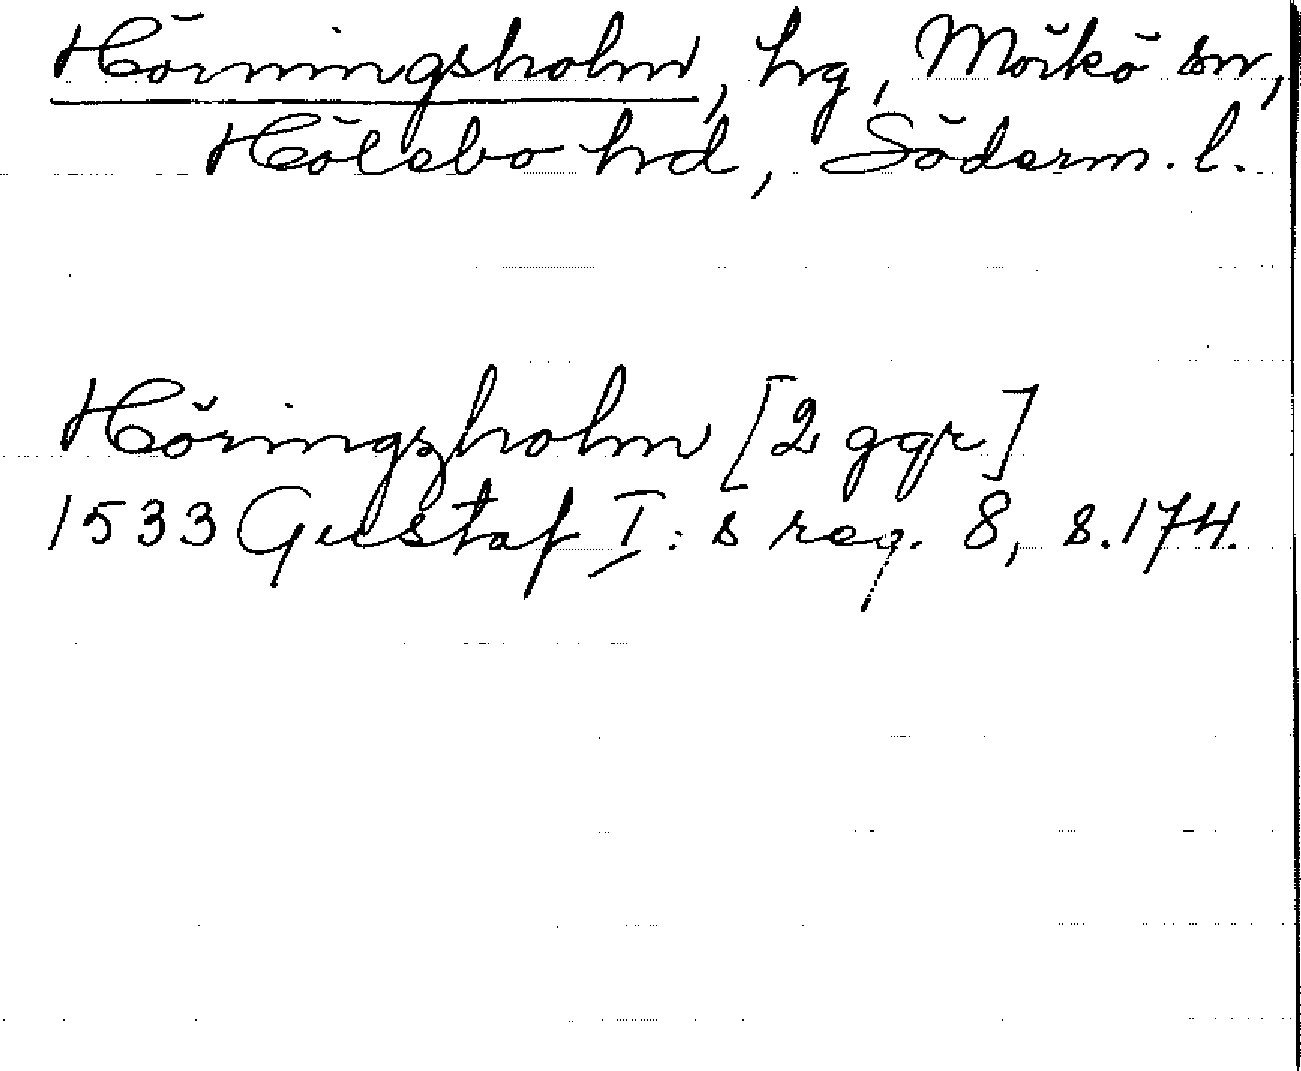 Hörningsholm, hg, Mörkö sn,
Hölebo hd, Söderm. l.
Höringzholm [2 ggr]
1533 Gustaf I:s reg. 8, s. 174.